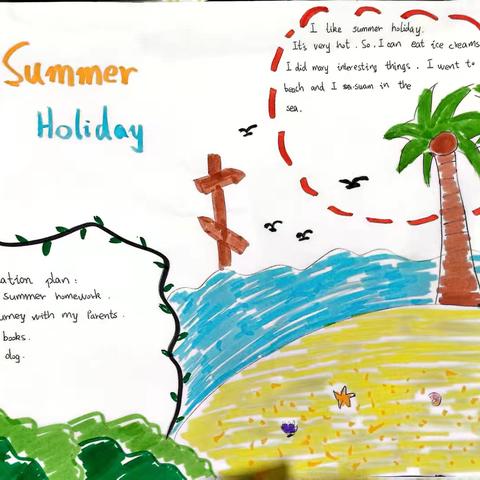 Summer
Holiday
I like summer holiday.
It's very hot. So. I can eat ice creams
I did many interesting things. I went to
beach and I swam in the
sea.
ation plan:
summer homework.
urney with my parents.
books.
dog.